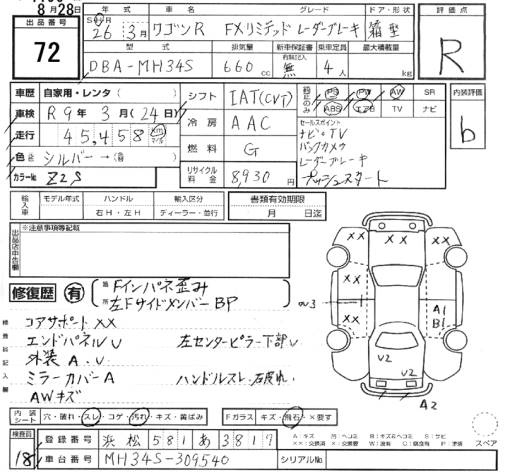 8月28日
出品番号
72
年式 車名 グレード ドア・形状 評価点
26 3月 ワゴンR FXリミテッド レーダーブレーキ 箱型 R
型式 排気量 新車保証書 乗車定員 最大積載量
DBA-MH34S 660cc 無 4人 kg
車歴 自家用・レンタ( )
車検 R9年3月(24日)
走行 45,458 km
色 シルバー→( )
カラーNo. Z2S
シフト IAT(CVT)
冷房 AAC
燃料 G
リサイクル料金 8,930円
PS PW AW SR
ABS エアB TV ナビ
内装評価
b
セールスポイント
ナビ・TV
バックカメラ
レーダーブレーキ
プッシュスタート
輸入車 モデル年式 ハンドル 輸入区分 書類有効期限
右H・左H ディーラー・並行 月 日迄
出品店申告欄
※注意事項等記載
修復歴 有 箇所
Fインパネ歪み
左FサイドメンバーBP
コアサポートXX
エンドパネルU 左センターピラー下部U
外装A.U
ミラーカバーA ハンドルスレ、右皮れ.
AWキズ
XX XX XX XX
A1
B1
U2 U2
A2
内装シート 穴・破れ・スレ・コゲ・汚れ・キズ・黄ばみ Fガラス キズ・飛石・×要す
スペア
検査員
18
登録番号 浜松581あ3817
車台番号 MH34S-309540 シリアルNo.